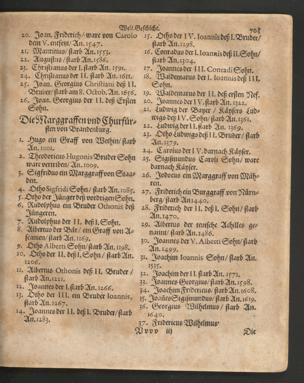 Welt-Geschicht.
20. Joan. Friderich/ ware von Carolo
dem V. entsetzt. An. 1547.
21. Mauritius/ starb An. 1553.
22. Augustus/ starb An. 1586.
23. Christianus der I. starb An. 1591.
24. Christianus der II. starb An. 1611.
25. Joan. Georgius Christiani deß II.
Bruder/ starb am 8. Octob. An. 1656.
26. Joan. Georgius der II. deß Ersten
Sohn.
Die Marggraffen und Churfür-
sten von Brandenburg.
1. Hugo ein Graff von Wethin/ starb
An. 1001.
2. Theodoricus Hugonis Bruder Sohn
ware vertriben/ An. 1009.
3. Sigfridus ein Marggraff von Staa-
den.
4. Otho Sigfridi Sohn/ starb An. 1085.
5. Otho der Jünger deß vorderigen Sohn.
6. Rudolphus ein Bruder Othonis deß
Jüngeren.
7. Rudolphus der II. deß I. Sohn.
8. Albertus der Bär/ ein Graff von A-
scanien/ starb An. 1169.
9. Otho Alberti Sohn/ starb An. 1198.
10. Otho der II. deß I. Sohn/ starb An.
1206.
11. Albertus Othonis deß II. Bruder/
starb An. 1221.
12. Joannes der I. starb An. 1266.
13. Otho der III. ein Bruder Joannis,
starb An. 1267.
14. Joannes der II. deß I. Sohn/ starb
An. 1285.
15. Otho der IV. Joannis deß II. Bruder/
starb An. 1298.
16. Conradus der I. Joannis deß II. Sohn/
starb An. 1304.
17. Joannes der III. Conradi Sohn.
18. Waldemarus der I. Joannis deß III.
Sohn.
19. Waldemarus der II. deß ersten Nef.
20. Joannes der IV. starb An. 1322.
21. Ludwig der Bayer/ Käysers Lud-
wigs deß V. Sohn/ starb An. 1361.
22. Ludwig der II. starb An. 1369.
23. Otho Ludwigs deß II. Bruder/ starb
An. 1379.
24. Carolus der IV. darnach Käyser.
25. Sigismundus Caroli Sohn/ ware
darnach Käyser.
26. Jodocus ein Marggraff von Mäh-
ren.
27. Friderich ein Burggraff von Nürn-
berg/ starb An. 1440.
28. Friderich der II. deß I. Sohn/ starb
An. 1470.
29. Albertus der teutsche Achilles ge-
nannt/ starb An. 1486.
30. Joannes der V. Alberti Sohn/ starb
An. 1499.
31. Joachim Joannis Sohn/ starb An.
1535.
32. Joachim der II. starb An. 1571.
33. Joannes Georgius/ starb An. 1598.
34. Joachim Fridericus/ starb An. 1608.
35. Joanes Sigismundus/ starb An. 1619.
36. Georgius Wilhelmus/ starb An.
1640.
37. Fridericus Wilhelmus/
Vvvv iij
Die